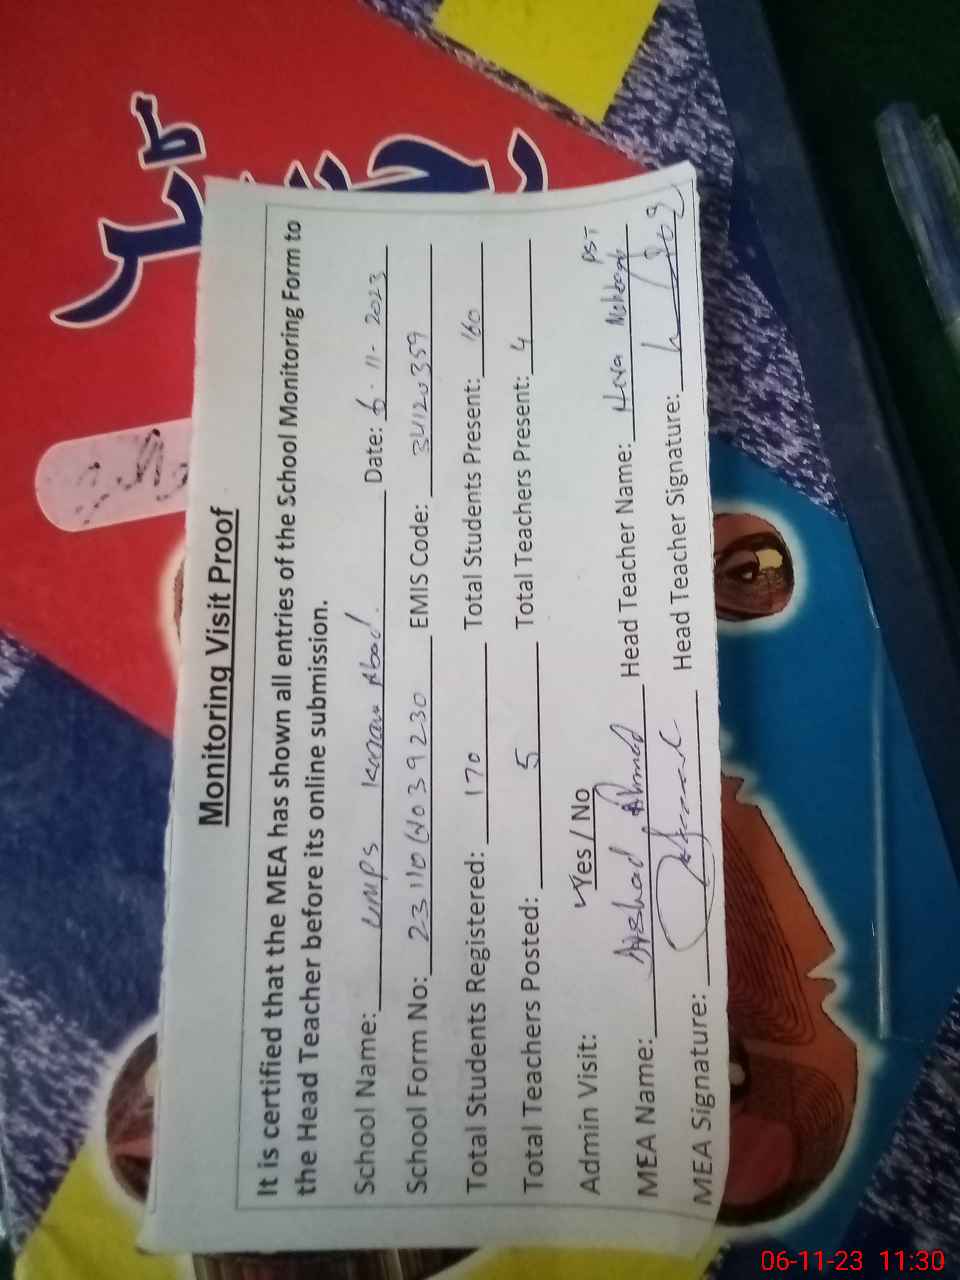 Monitoring Visit Proof
It is certified that the MEA has shown all entries of the School Monitoring Form to
the Head Teacher before its online submission.
School Name: GMPS Karam Abad. Date: 6-11-2023
School Form No: EMIS Code: 34120359
Total Students Registered: 170 Total Students Present: 160
Total Teachers Posted: 5 Total Teachers Present: 4
Admin Visit: Yes / No PST
MEA Name: Arshad Ahmed Head Teacher Name:
MEA Signature: Head Teacher Signature:
06-11-23 11:30